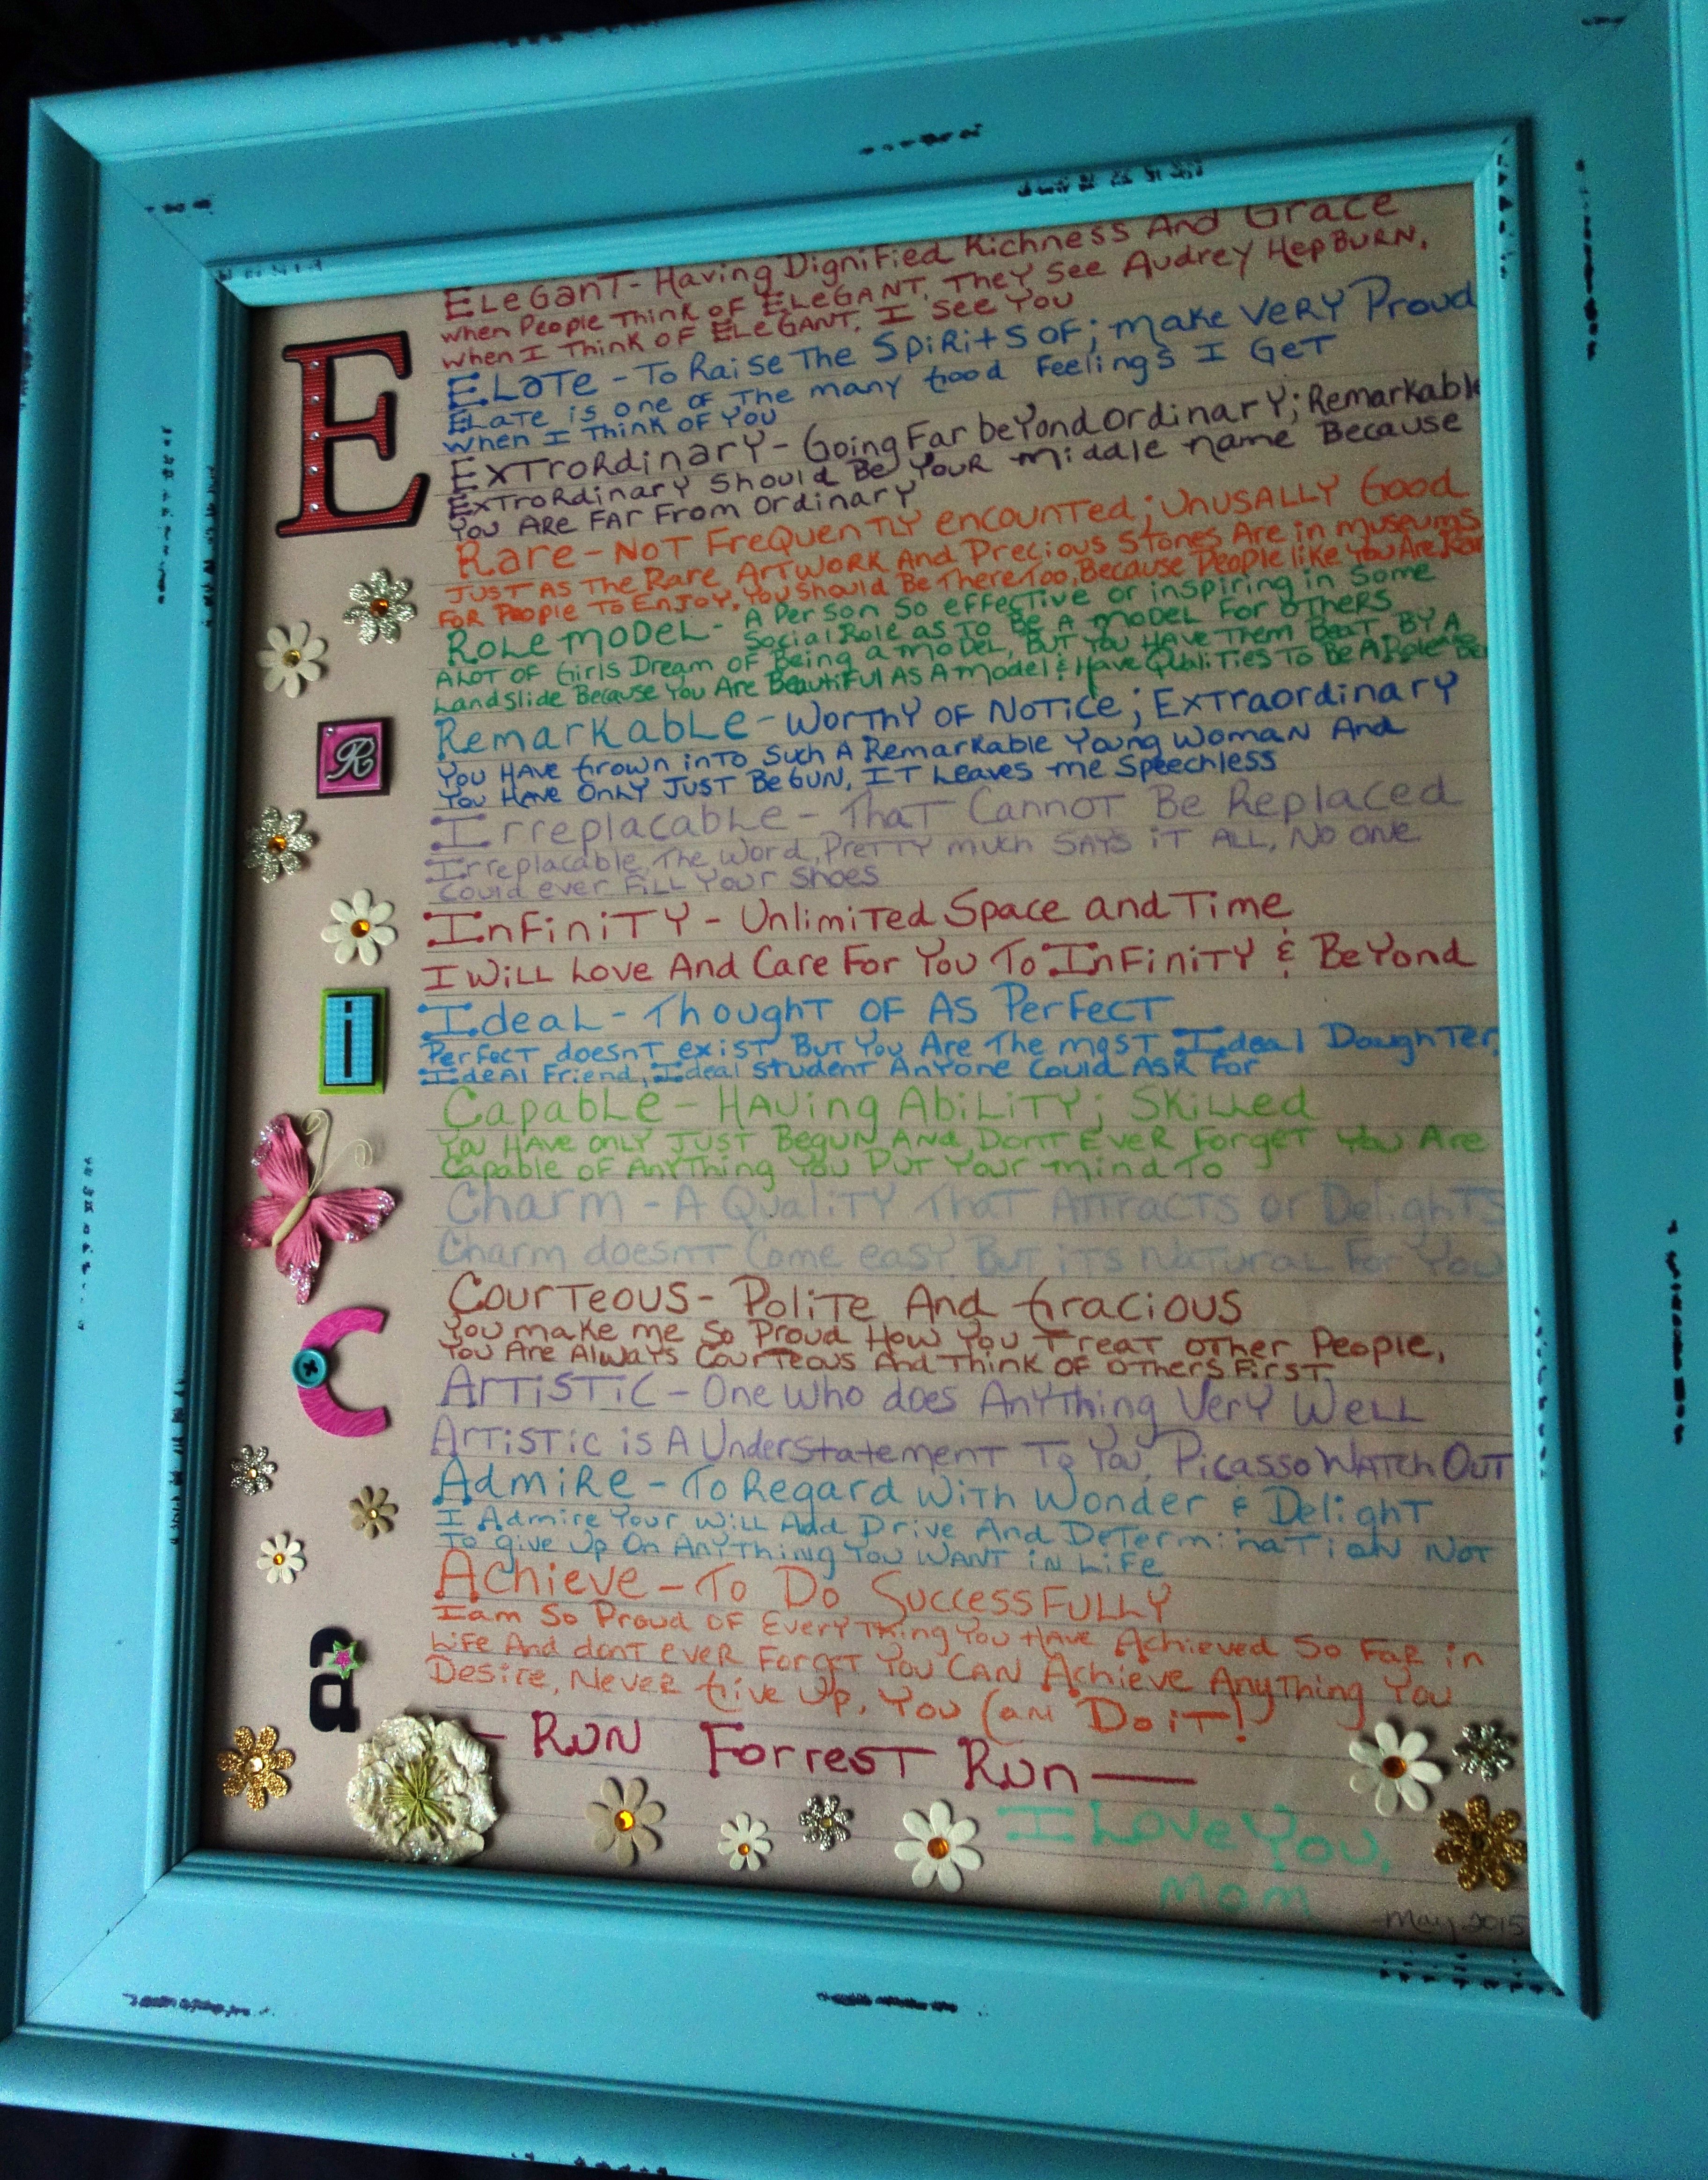 Elegant - Having Dignified Richness And Grace
When People Think of ELEGANT, They See Audrey Hepburn,
When I Think of ELEGANT, I See You
E
Elate - To Raise The Spirits of; make very Proud
Elate is one of the many Good Feelings I Get
When I Think of You
Extrordinary - Going Far beyond ordinary; Remarkable
Extrordinary Should Be Your middle name Because
You Are Far From Ordinary
Rare - Not Frequently encounted; Unusally Good
Just As The Rare Artwork And Precious Stones Are in museums
For People To Enjoy, You Should Be There Too, Because People like You Are Rare
Role model - A Person So effective or inspiring in Some
Social Role as To Be A model For others
A Lot of Girls Dream of Being a model, But You Have Them Beat By A
Landslide Because You Are Beautiful As A model & Have Qualities To Be A Role
R
Remarkable - Worthy of Notice; Extraordinary
You Have Grown into Such A Remarkable Young Woman And
You Have Only Just Begun, It Leaves me Speechless
Irreplacable - That Cannot Be Replaced
Irreplacable, The Word, Pretty much Says it All, No one
Could ever Fill Your Shoes
Infinity - Unlimited Space and Time
I Will Love And Care For You To Infinity & Beyond
i
Ideal - Thought Of As Perfect
Perfect doesnt exist, But You Are The most Ideal Daughter,
Ideal Friend, Ideal Student Anyone Could Ask For
Capable - Having Ability; Skilled
You Have only Just Begun And Dont Ever Forget You Are
Capable of Anything You Put Your mind To
Charm - A Quality That Attracts or Delights
Charm doesnt Come easy, But its Natural For You
C
Courteous - Polite And Gracious
You make me So Proud How You Treat other People,
You Are Always Courteous And Think Of Others First.
Artistic - One Who does Anything Very Well
Artistic is A Understatement To You, Picasso Watch Out
Admire - To Regard With Wonder & Delight
I Admire Your Will Add Drive And Determination Not
To give Up On Anything You Want in Life
Achieve - To Do Successfully
I am So Proud of Everything You Have Achieved So Far in
Life And dont ever Forget You Can Achieve Anything You
Desire, Never Give Up, You Can Do it!
a
- Run Forrest Run -
I Love You,
Mom
May 2015